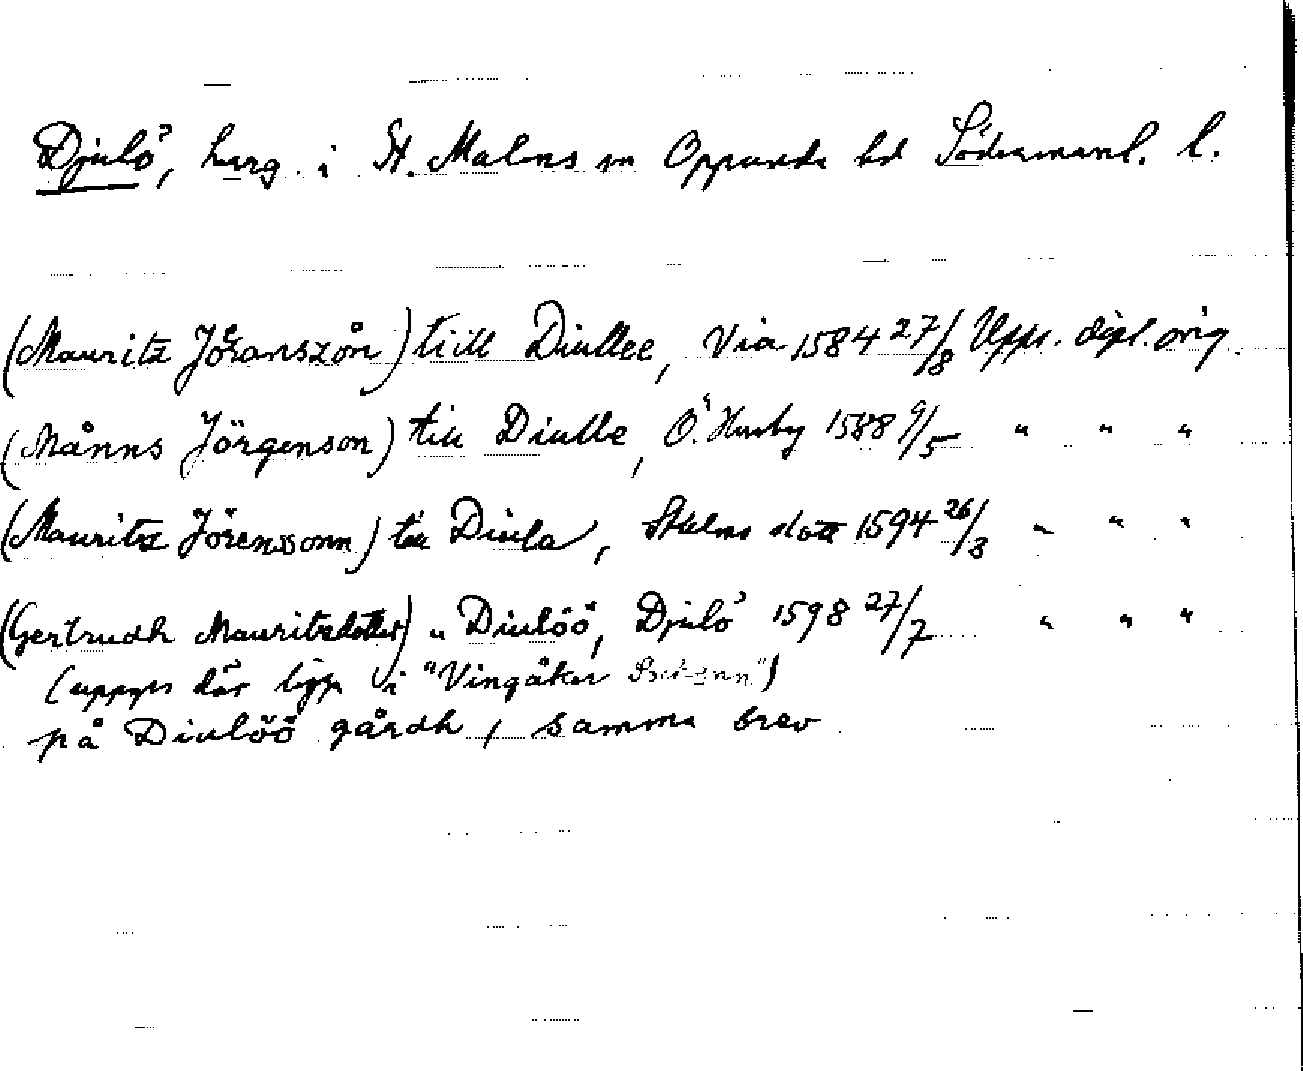 Djulö, herrg. i St. Malms sn Oppunda hd Södermanl. l.
(Mauritz Jöranszån) till Diullee, Via 1584 27/8 Upps. dipl. orig.
(Månns Jörgenson) till Diulle, Ö. Husby 1588 9/5 " " "
(Mauritz Jörenssonn) till Diula, Sthlms slott 1594 26/3 " " "
(Gertrudh Mauritzdotter) " Diulöö, Djulö 1598 27/7 " " "
(uppges där ligga i "Vingåker Sochenn")
på Diulöö gårdh, samma brev